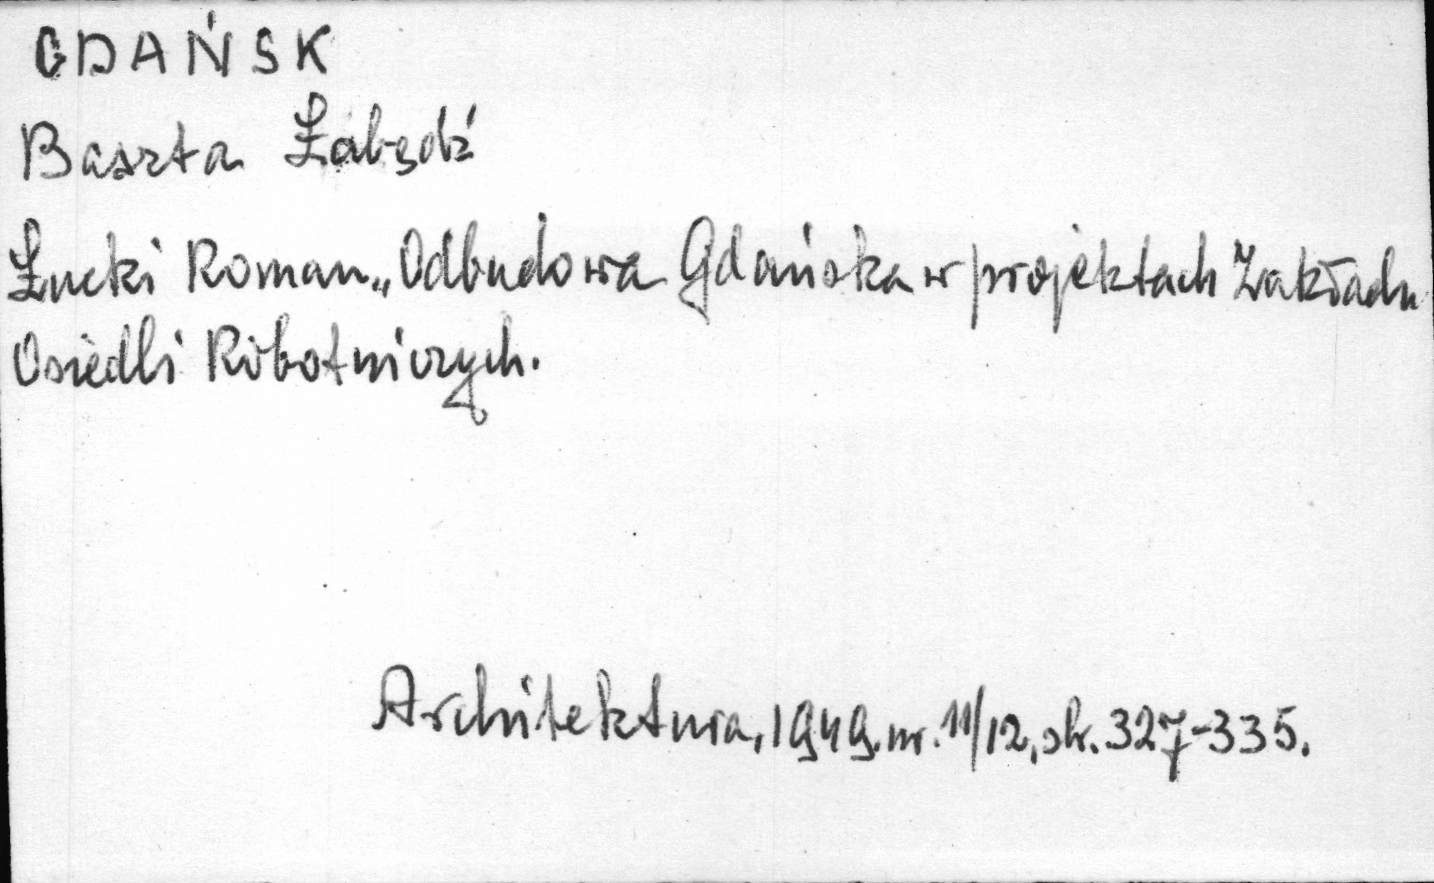 GDAŃSK
Baszta Łabędź
Łucki Roman „Odbudowa Gdańska w projektach Zakładu
Osiedli Robotniczych.
Architektura, 1949. nr. 11/12, str. 327-335.